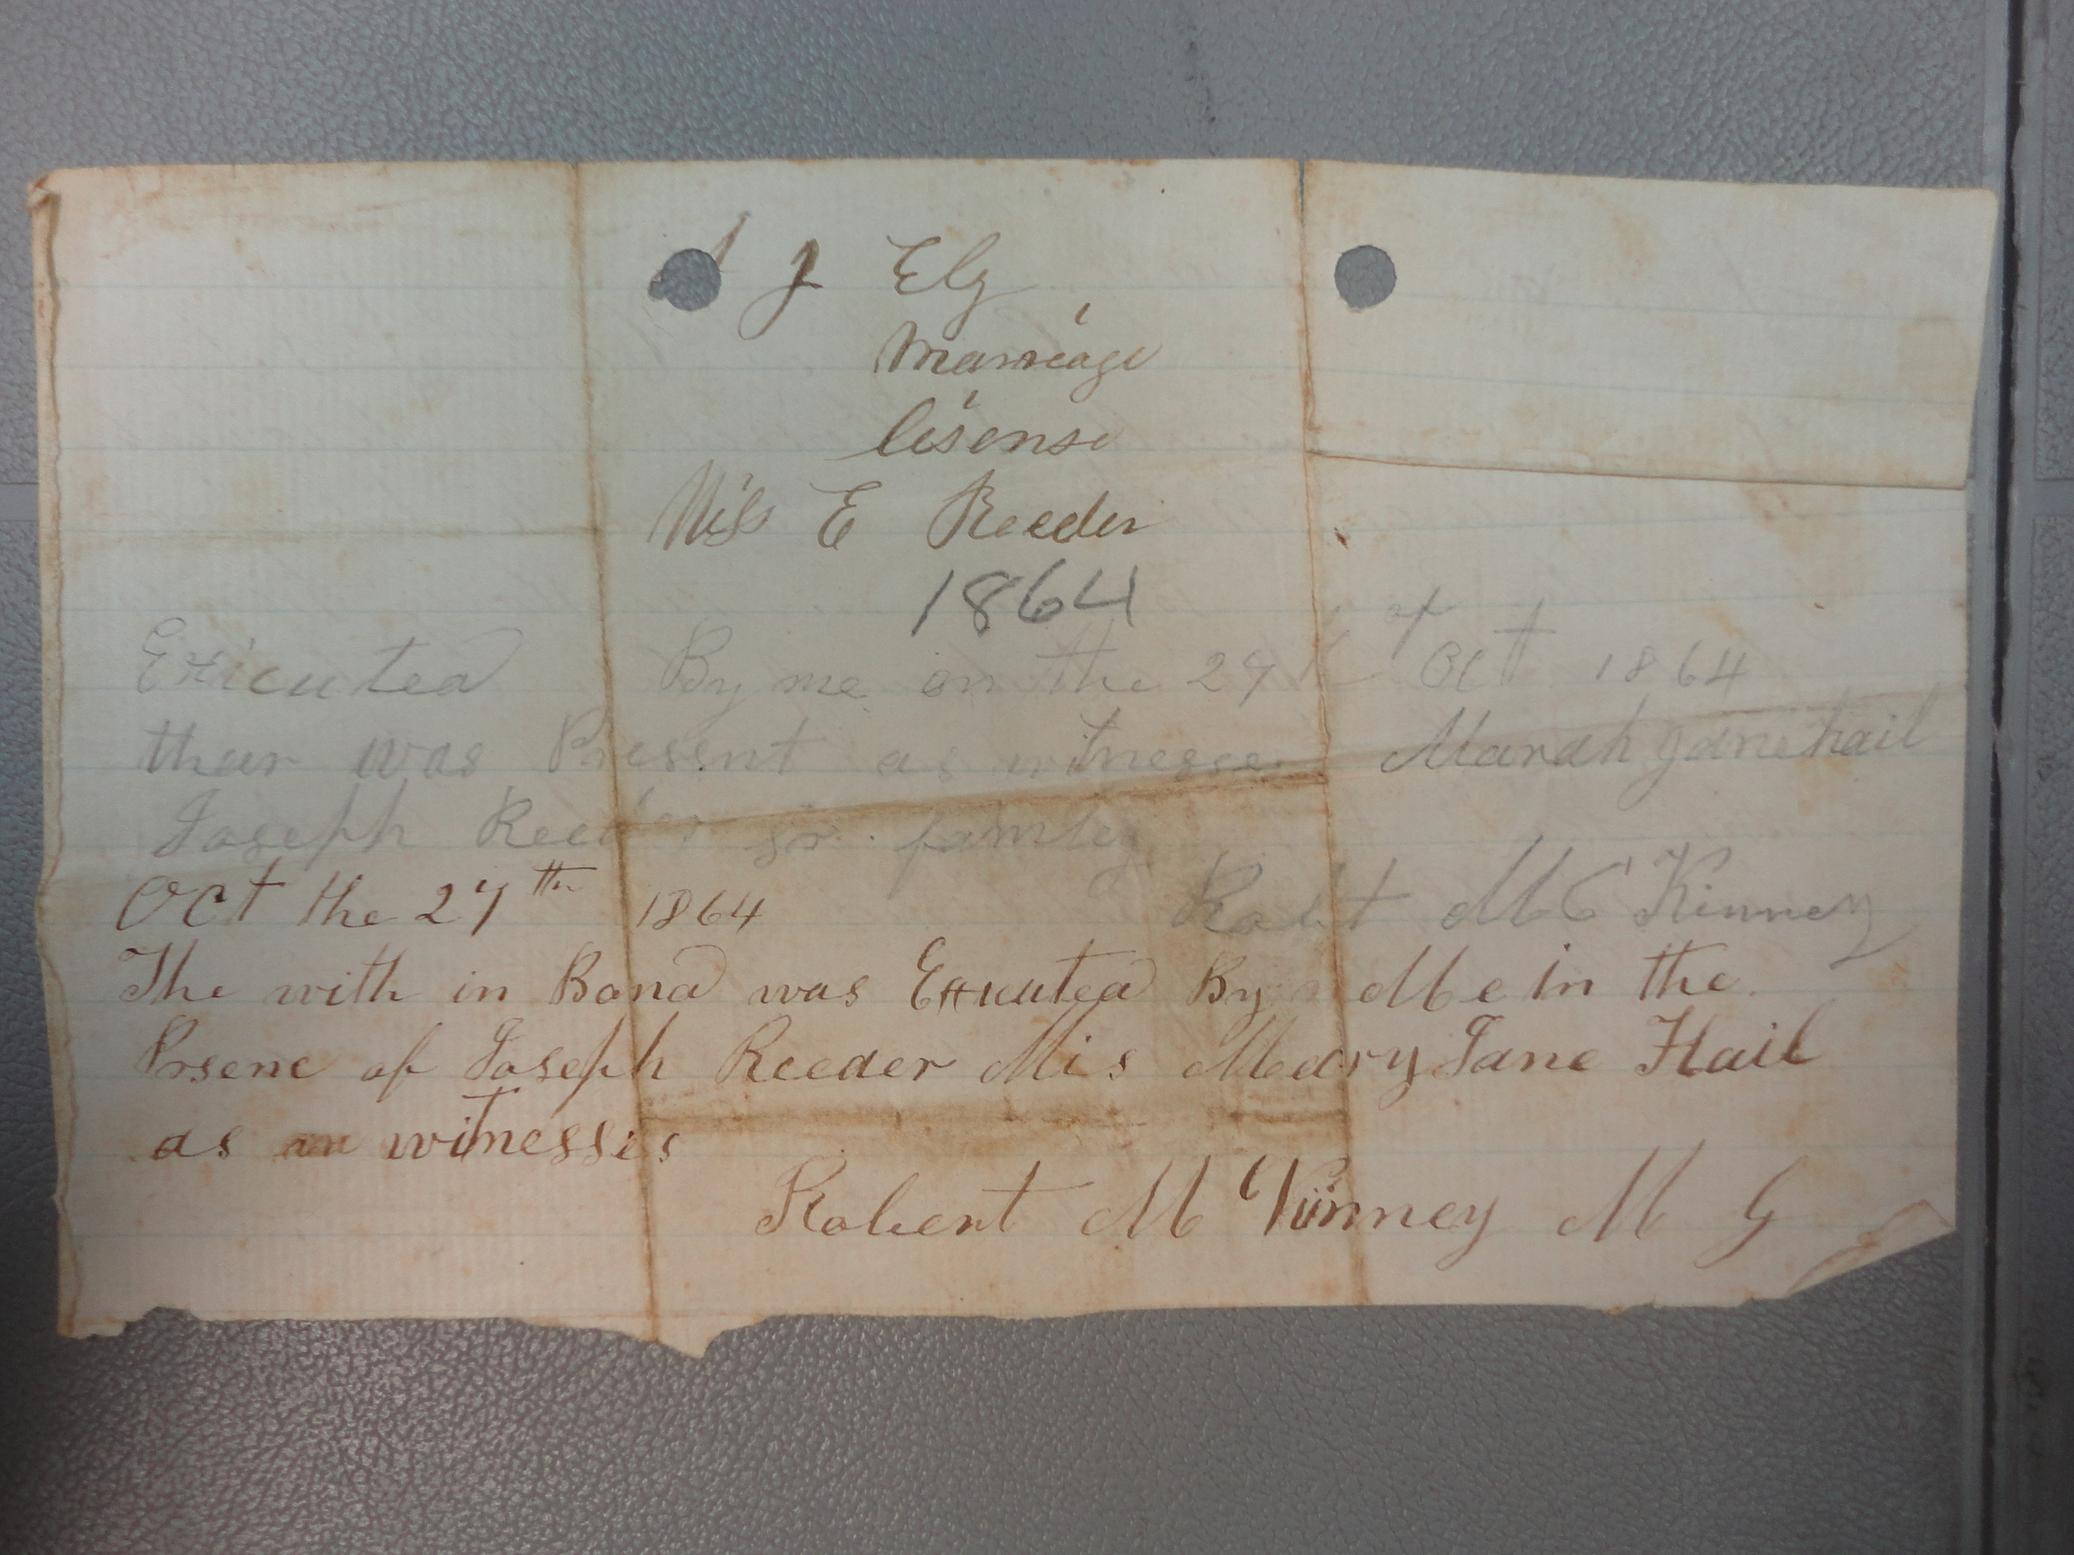 J Ely
Marriage
lisense
Miss E Reeder
1864
Exicuted By me on the 27 of Oct 1864
thear was Present as witnesses Marah Jane hail
Joseph Reeder sr. famley
Robt Mc Kinney
Oct the 27th 1864
The with in Bond was Exucuted By Me in the
Prsenc of Joseph Reeder Mis Meary Jane Hail
as witnessis
Robert Mc Kinney M G